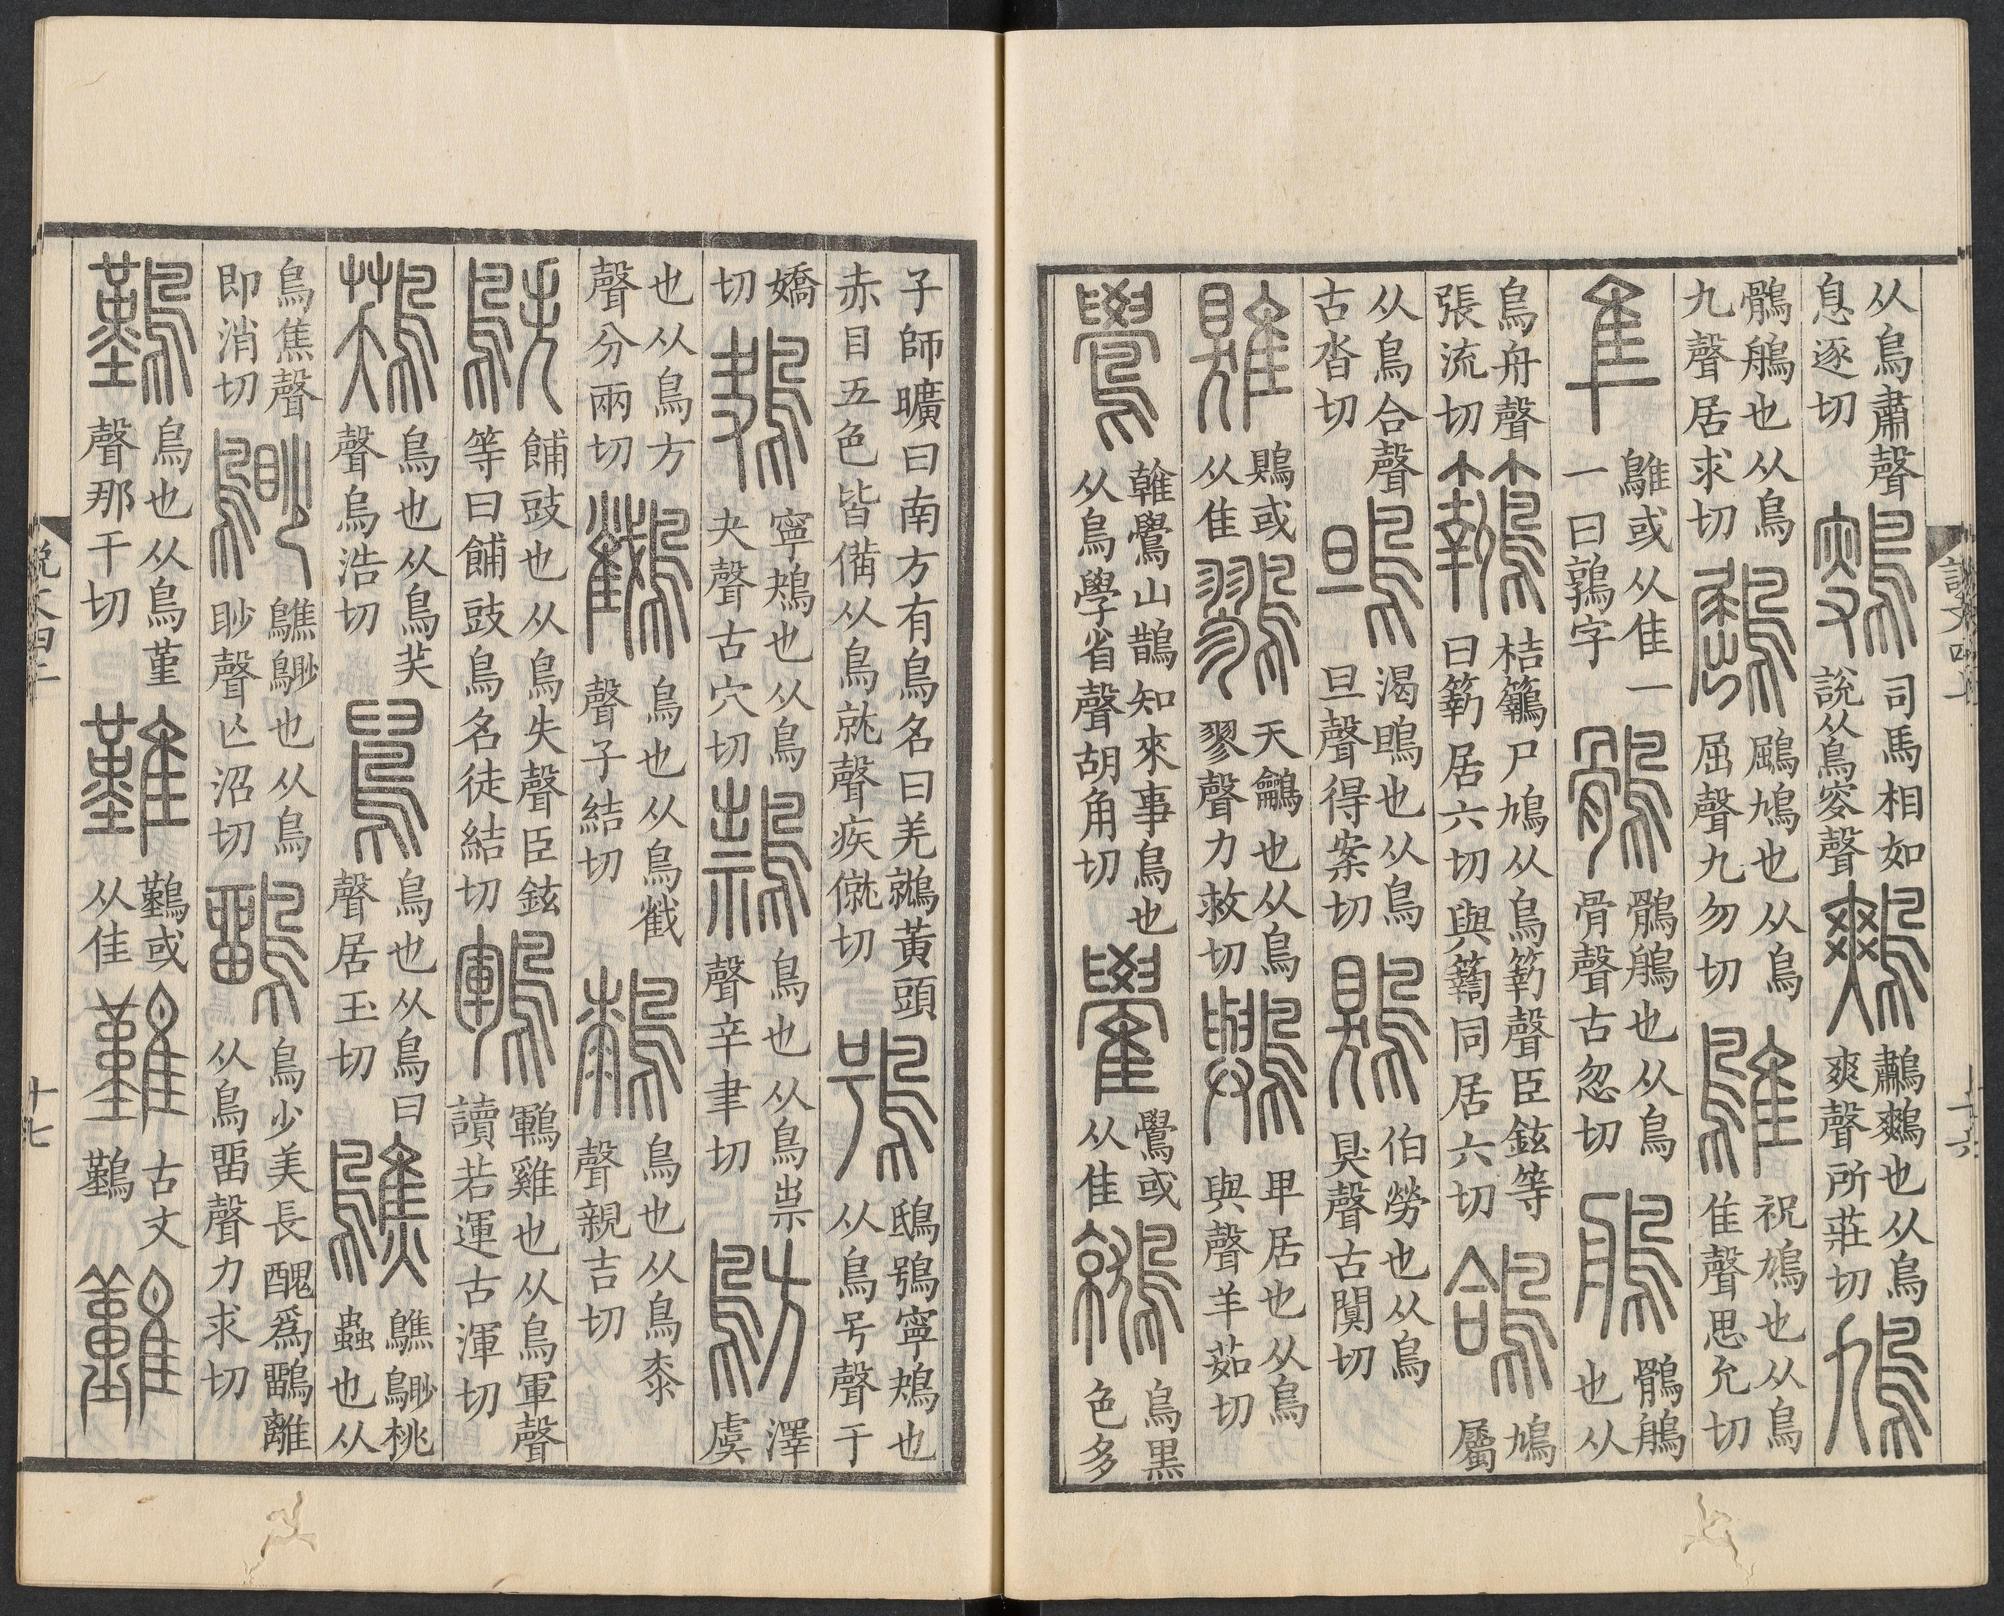 从鳥肅聲息逐切 司馬相如說从鳥叜聲 鷞 鷫鷞也从鳥爽聲所莊切 鳩
鶻鵃也从鳥九聲居求切 鶌 鶌鳩也从鳥屈聲九勿切 鵻 祝鳩也从鳥隹聲思允切
隼 鵻或从隹一一曰鶉字 鶻 鶻鵃也从鳥骨聲古忽切 鵃 鶻鵃也从
鳥舟聲張流切 桔尸鳩从鳥聲臣鉉等曰居六切與同居六切 鴿 鳩屬
从鳥合聲古沓切 鴠 渴鴠也从鳥旦聲得案切 鶪 伯勞也从鳥狊聲古闃切
鶪或从隹 鷚 天鸙也从鳥翏聲力救切 鸒 卑居也从鳥與聲羊茹切
鷽 雗鷽山鵲知來事鳥也从鳥學省聲胡角切 鷽或从隹 鷲 鳥黑色多
說文四上
十六
子師曠曰南方有鳥名曰羌鷲黃頭赤目五色皆備从鳥就聲疾僦切 鴞 鴟鴞寧鴂也从鳥号聲于
嬌切 鴂 寧鴂也从鳥夬聲古穴切 鳥也从鳥祟聲辛聿切 鶭 澤虞
也从鳥方聲分兩切 鳥也从鳥㦰聲子結切 鳥也从鳥桼聲親吉切
鴩 餔豉也从鳥失聲臣鉉等曰餔豉鳥名徒結切 鶤 鶤雞也从鳥軍聲讀若運古渾切
鳥也从鳥芺聲烏浩切 鳥也从鳥𦥑聲居玉切 鷦 鷦䳟桃蟲也从
鳥焦聲即消切 䳟 鷦䳟也从鳥眇聲亡沼切 鶹 鳥少美長醜爲鶹離从鳥畱聲力求切
鸛 鳥也从鳥堇聲那干切 難 鷬或从隹 古文鷬
說文四上
十七